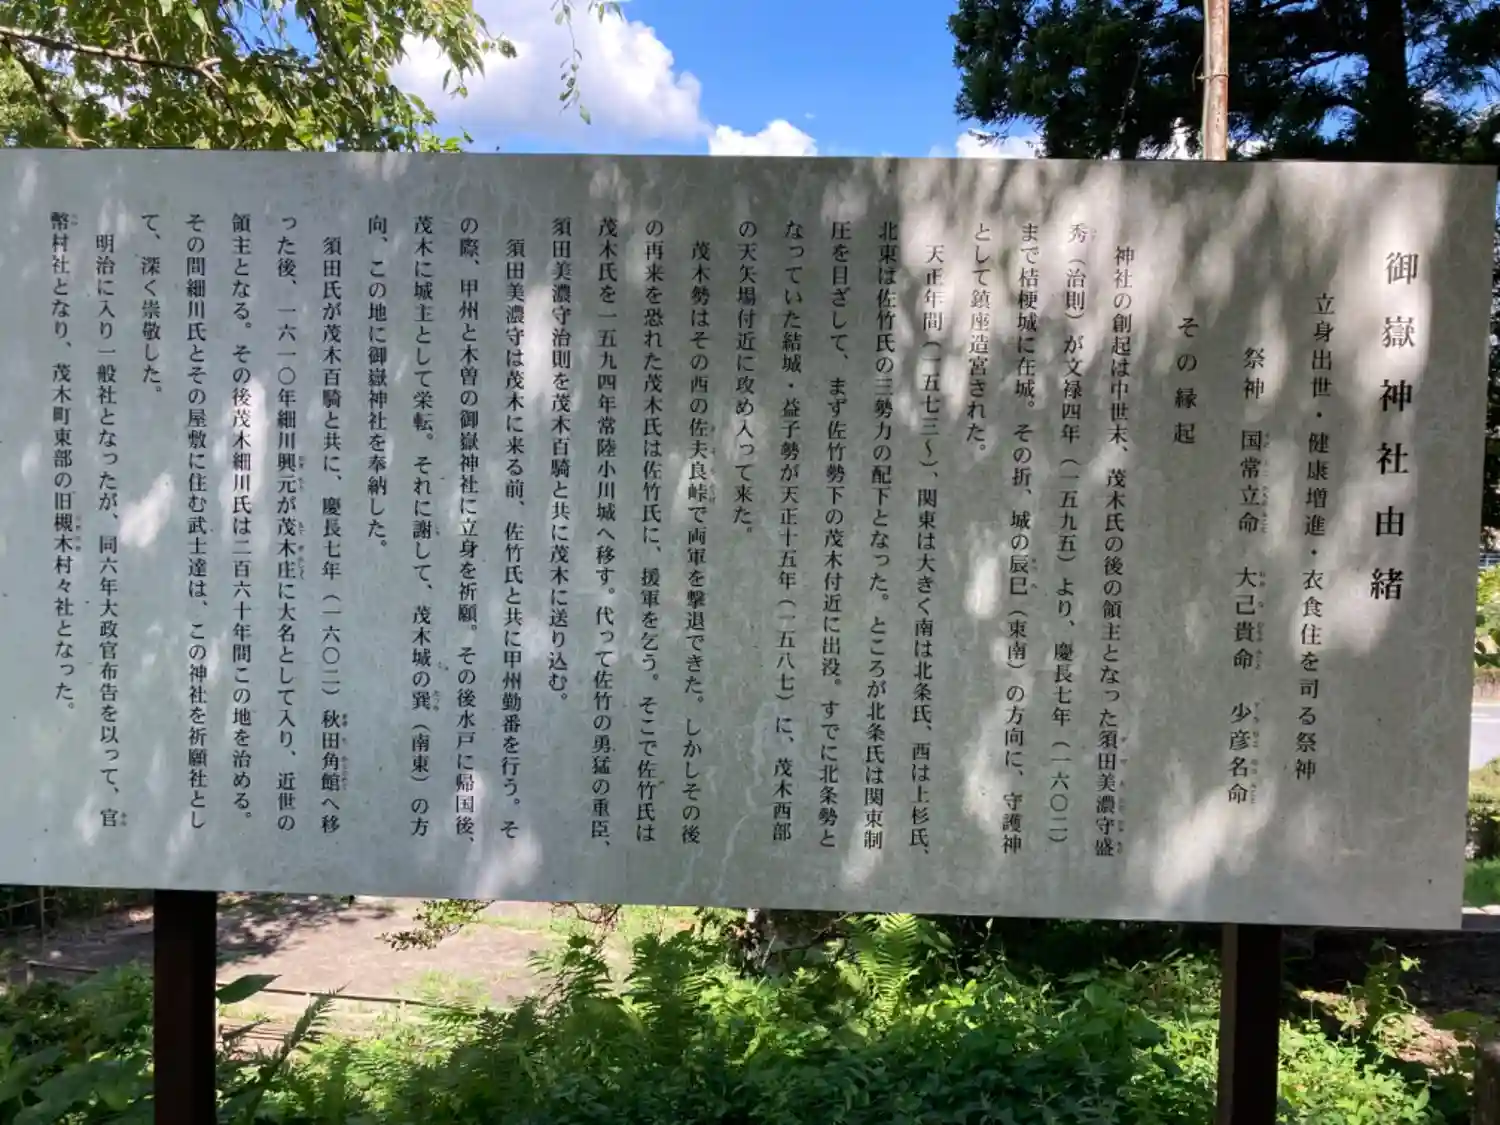 御嶽神社由緒
立身出世・健康増進・衣食住を司る祭神
祭神　国常立命　大己貴命　少彦名命
その縁起
神社の創起は中世末、茂木氏の後の領主となった須田美濃守盛
秀（治則）が文禄四年（一五九五）より、慶長七年（一六〇二）
まで桔梗城に在城。その折、城の辰巳（東南）の方向に、守護神
として鎮座造宮された。
天正年間（一五七三～）、関東は大きく南は北条氏、西は上杉氏、
北東は佐竹氏の三勢力の配下となった。ところが北条氏は関東制
圧を目ざして、まず佐竹勢下の茂木付近に出没。すでに北条勢と
なっていた結城・益子勢が天正十五年（一五八七）に、茂木西部
の天矢場付近に攻め入って来た。
茂木勢はその西の佐夫良峠で両軍を撃退できた。しかしその後
の再来を恐れた茂木氏は佐竹氏に、援軍を乞う。そこで佐竹氏は
茂木氏を一五九四年常陸小川城へ移す。代って佐竹の勇猛の重臣、
須田美濃守治則を茂木百騎と共に茂木に送り込む。
須田美濃守は茂木に来る前、佐竹氏と共に甲州勤番を行う。そ
の際、甲州と木曽の御嶽神社に立身を祈願。その後水戸に帰国後、
茂木に城主として栄転。それに謝して、茂木城の巽（南東）の方
向、この地に御嶽神社を奉納した。
須田氏が茂木百騎と共に、慶長七年（一六〇二）秋田角館へ移
った後、一六一〇年細川興元が茂木庄に大名として入り、近世の
領主となる。その後茂木細川氏は二百六十年間この地を治める。
その間細川氏とその屋敷に住む武士達は、この神社を祈願社とし
て、深く崇敬した。
明治に入り一般社となったが、同六年大政官布告を以って、官
幣村社となり、茂木町東部の旧槻木村々社となった。